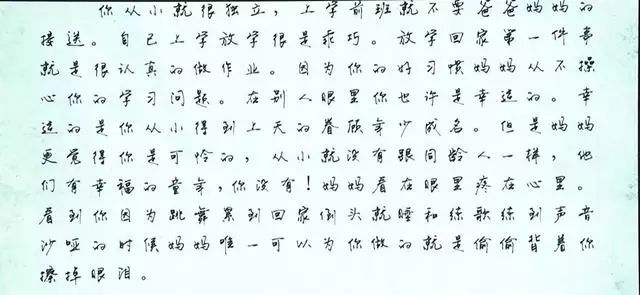 你从小就很独立，上学前班就不要爸爸妈妈的
接送。自己上学放学很是乖巧。放学回家第一件事
就是很认真的做作业。因为你的好习惯妈妈从不操
心你的学习问题。在别人眼里你也许是幸运的。幸
运的是你从小得到上天的眷顾年少成名。但是妈妈
更觉得你是可怜的，从小就没有跟同龄人一样，他
们有幸福的童年，你没有！妈妈看在眼里疼在心里。
看到你因为跳舞累到回家倒头就睡和练歌练到声音
沙哑的时候妈妈唯一可以为你做的就是偷偷背着你
擦掉眼泪。